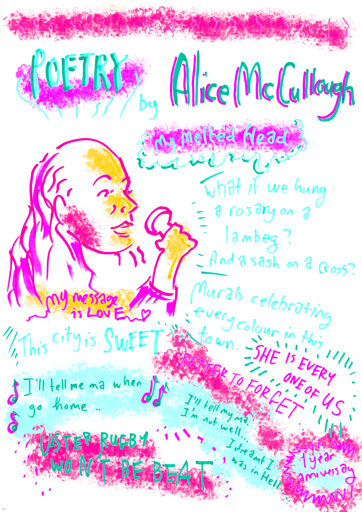 POETRY
by
Alice McCullough
My Melted Head
What if we hung
a rosary on a
lambeg?
And a sash on a cross?
Murals celebrating
every colour in this
town.
my message
is LOVE
This city is SWEET
SHE IS EVERY
ONE OF US
TO FORGET
I'll tell me ma when
go home ..
I'll tell my ma
I'm not well...
I dreamt I
was in Hell
ULSTER RUGBY
WON'T BE BEAT
1 year
anniversary